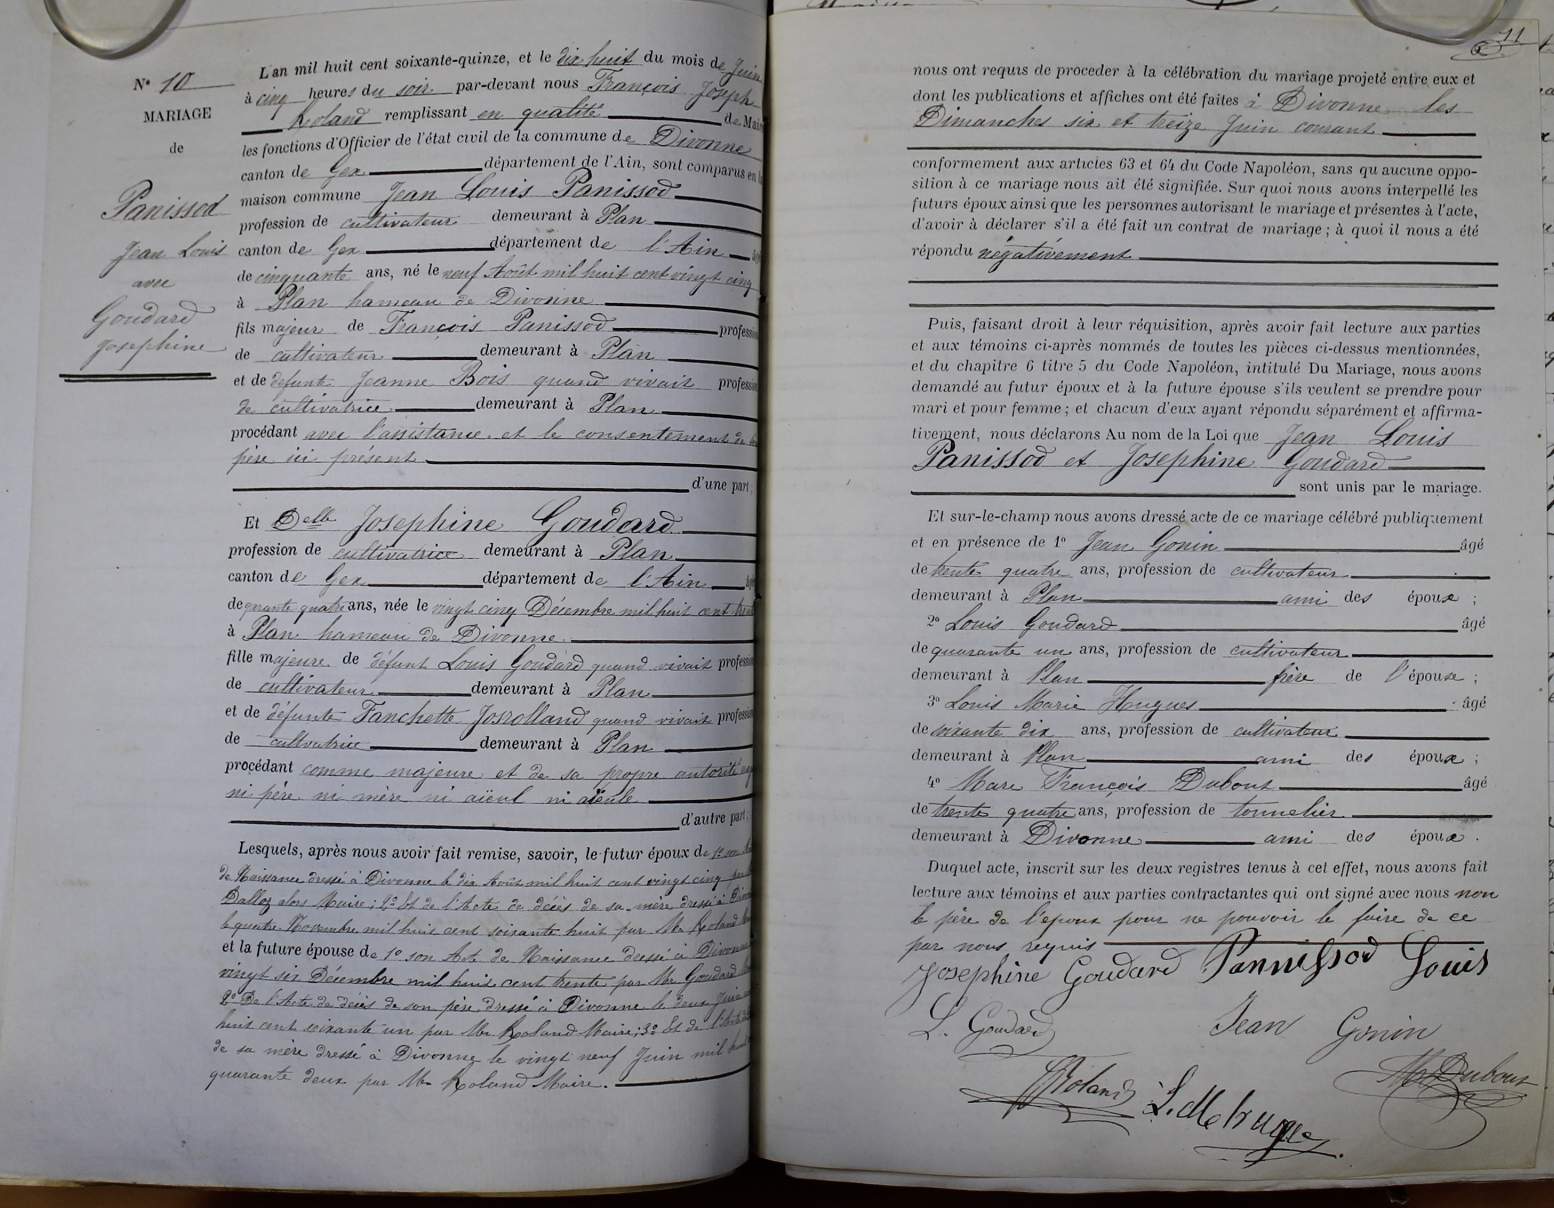 N° 10
MARIAGE
de
Panissod
Jean Louis
avec
Goudard
Josephine
L'an mil huit cent soixante-quinze, et le dix huit du mois de Juin
à cinq heures du soir par-devant nous François Joseph
Roland remplissant en qualité de Maire
les fonctions d'Officier de l'état civil de la commune de Divonne
canton de Gex département de l'Ain, sont comparus en la
maison commune Jean Louis Panissod
profession de cultivateur demeurant à Plan
canton de Gex département de l'Ain
de cinquante ans, né le neuf Août mil huit cent vingt cinq
à Plan hameau de Divonne
fils majeur de François Panissod profession
de cultivateur demeurant à Plan
et de défunte Jeanne Bois quand vivait profession
de cultivatrice demeurant à Plan
procédant avec l'assistance et le consentement de son
père ici présent
d'une part;
Et Delle Josephine Goudard
profession de cultivatrice demeurant à Plan
canton de Gex département de l'Ain
de quarante quatre ans, née le vingt cinq Décembre mil huit cent trente
à Plan hameau de Divonne
fille majeure de défunt Louis Goudard quand vivait profession
de cultivateur demeurant à Plan
et de défunte Fanchette Josrolland quand vivait profession
de cultivatrice demeurant à Plan
procédant comme majeure et de sa propre autorité
ni père ni mère ni aïeul ni aïeule
d'autre part;
Lesquels, après nous avoir fait remise, savoir, le futur époux de 1° son
de Naissance dressé à Divonne le dix Août mil huit cent vingt cinq par
Dalloz alors Maire; 2° Et de l'Acte de décès de sa mère dressé à Divonne
le quatre Novembre mil huit cent soixante huit par Mr Roland
et la future épouse de 1° son Acte de Naissance dressé à Divonne
vingt six Décembre mil huit cent trente par Mr Goudard
2° De l'Acte de décès de son père dressé à Divonne le deux Juin
huit cent soixante un par Mr Roland Maire; 3° Et de l'Acte
de sa mère dressé à Divonne le vingt neuf Juin mil huit
quarante deux par Mr Roland Maire.
11
nous ont requis de procéder à la célébration du mariage projeté entre eux et
dont les publications et affiches ont été faites à Divonne les
Dimanches six et treize Juin courant
conformement aux articles 63 et 64 du Code Napoléon, sans qu'aucune oppo-
sition à ce mariage nous ait été signifiée. Sur quoi nous avons interpellé les
futurs époux ainsi que les personnes autorisant le mariage et présentes à l'acte,
d'avoir à déclarer s'il a été fait un contrat de mariage; à quoi il nous a été
répondu négativement
Puis, faisant droit à leur réquisition, après avoir fait lecture aux parties
et aux témoins ci-après nommés de toutes les pièces ci-dessus mentionnées,
et du chapitre 6 titre 5 du Code Napoléon, intitulé Du Mariage, nous avons
demandé au futur époux et à la future épouse s'ils veulent se prendre pour
mari et pour femme; et chacun d'eux ayant répondu séparément et affirma-
tivement, nous déclarons Au nom de la Loi que Jean Louis
Panissod et Josephine Goudard
sont unis par le mariage.
Et sur-le-champ nous avons dressé acte de ce mariage célébré publiquement
et en présence de 1° Jean Gonin âgé
de trente quatre ans, profession de cultivateur
demeurant à Plan ami des époux;
2° Louis Goudard âgé
de quarante un ans, profession de cultivateur
demeurant à Plan frère de l'épouse;
3° Louis Marie Hugues âgé
de soixante dix ans, profession de cultivateur
demeurant à Plan ami des époux;
4° Marc François Dubout âgé
de trente quatre ans, profession de tonnelier
demeurant à Divonne ami des époux.
Duquel acte, inscrit sur les deux registres tenus à cet effet, nous avons fait
lecture aux témoins et aux parties contractantes qui ont signé avec nous non
le père de l'époux pour ne pouvoir le faire de ce
par nous requis
Josephine Goudard Pannissod Louis
L. Goudard Jean Gonin
Roland L. M. hugue Dubout